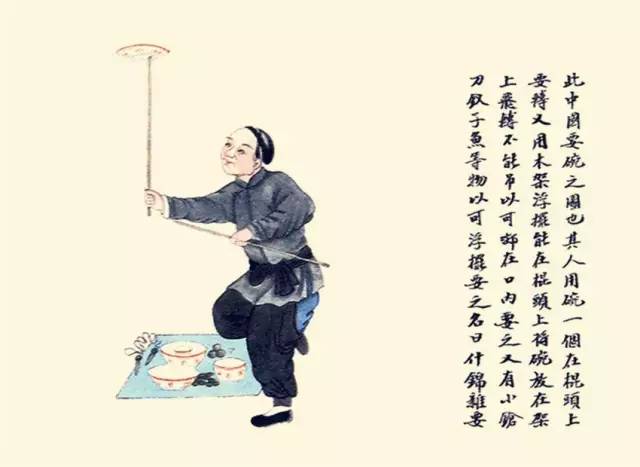 此中國耍碗之圖也其人用碗一個在棍頭上
耍轉又用木架浮擺能在棍頭上將碗放在架
上飛轉不能吊以可啣在口內耍之又有小鎗
刀釵子魚等物以可浮擺耍之名曰什錦雜耍